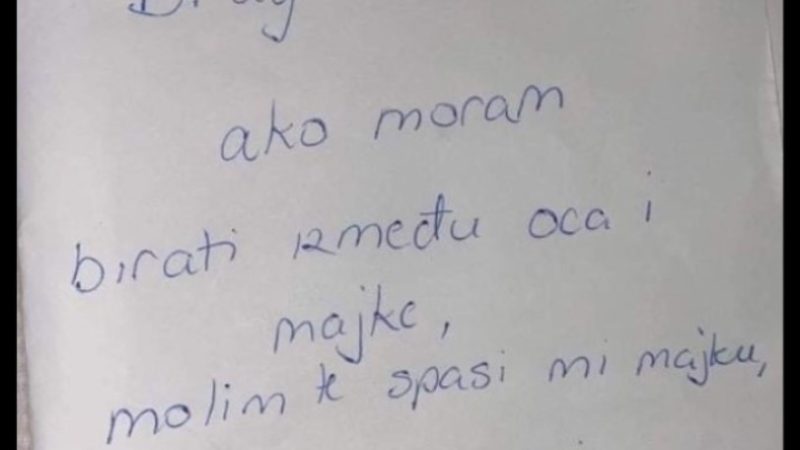 ako moram
birati između oca i
majke,
molim te spasi mi majku,